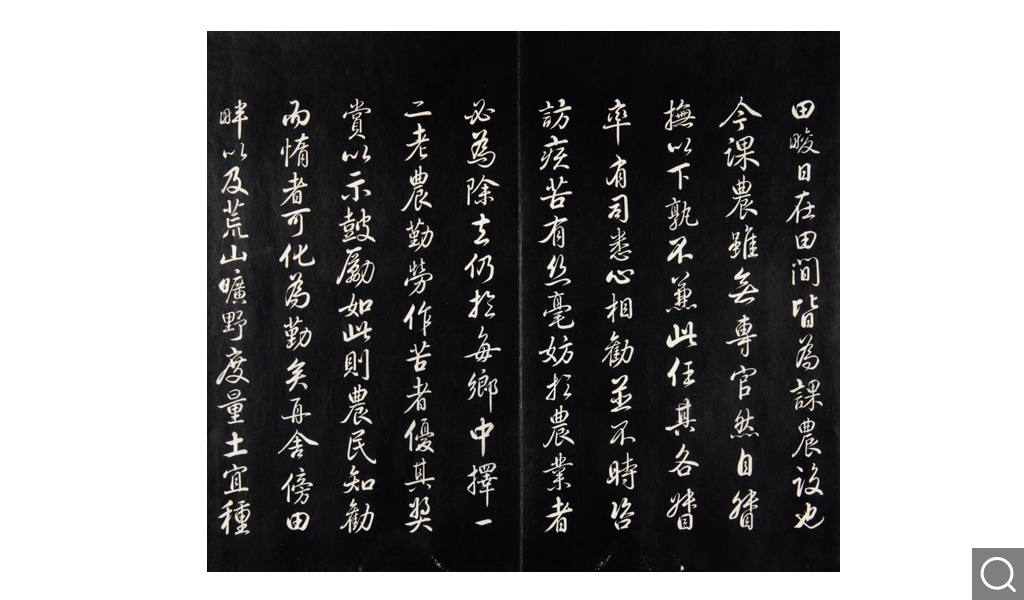 田畯日在田間皆為課農設也
今課農雖無專官然自督
撫以下孰不兼此任其各督
率有司悉心相勸並不時咨
訪疾苦有絲毫妨於農業者
必為除去仍於每鄉中擇一
二老農勤勞作苦者優其獎
賞以示鼓勵如此則農民知勸
而惰者可化為勤矣再舍傍田
畔以及荒山曠野度量土宜種